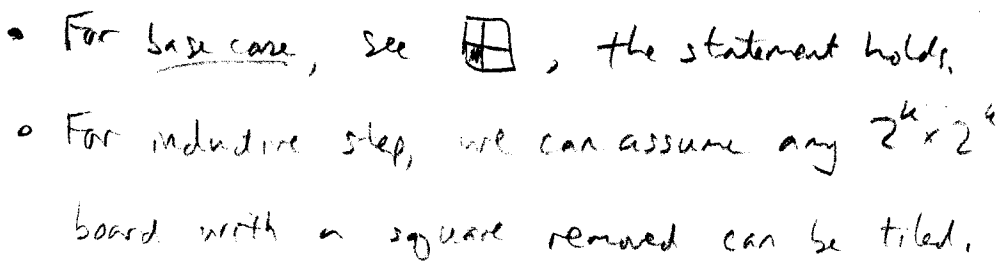 • For base case, see , the statement holds.
• For inductive step, we can assume any 2^k × 2^k
board with a square removed can be tiled.